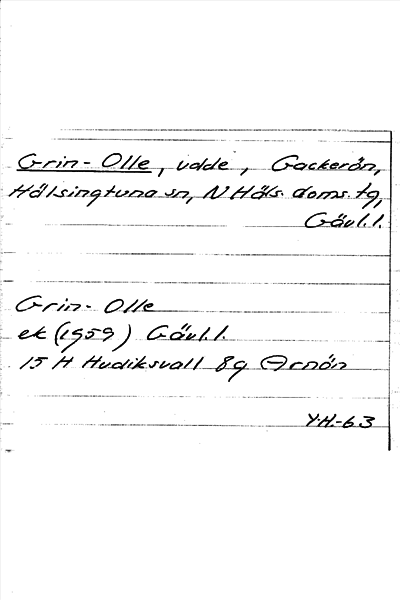 Grin-Olle, udde, Gackerön,
Hälsingtuna sn, N Häls. doms. tg,
Gävl. l.
Grin-Olle
ek (1959) Gävl. l.
15 H Hudiksvall 8g Arnön
Y.H.-63